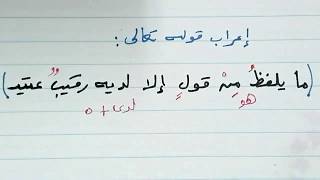 إعراب قوله تعالى :
( ما يلفظُ مِنْ قولٍ إلا لديه رقيبٌ عتيد )
هو لدى + ه